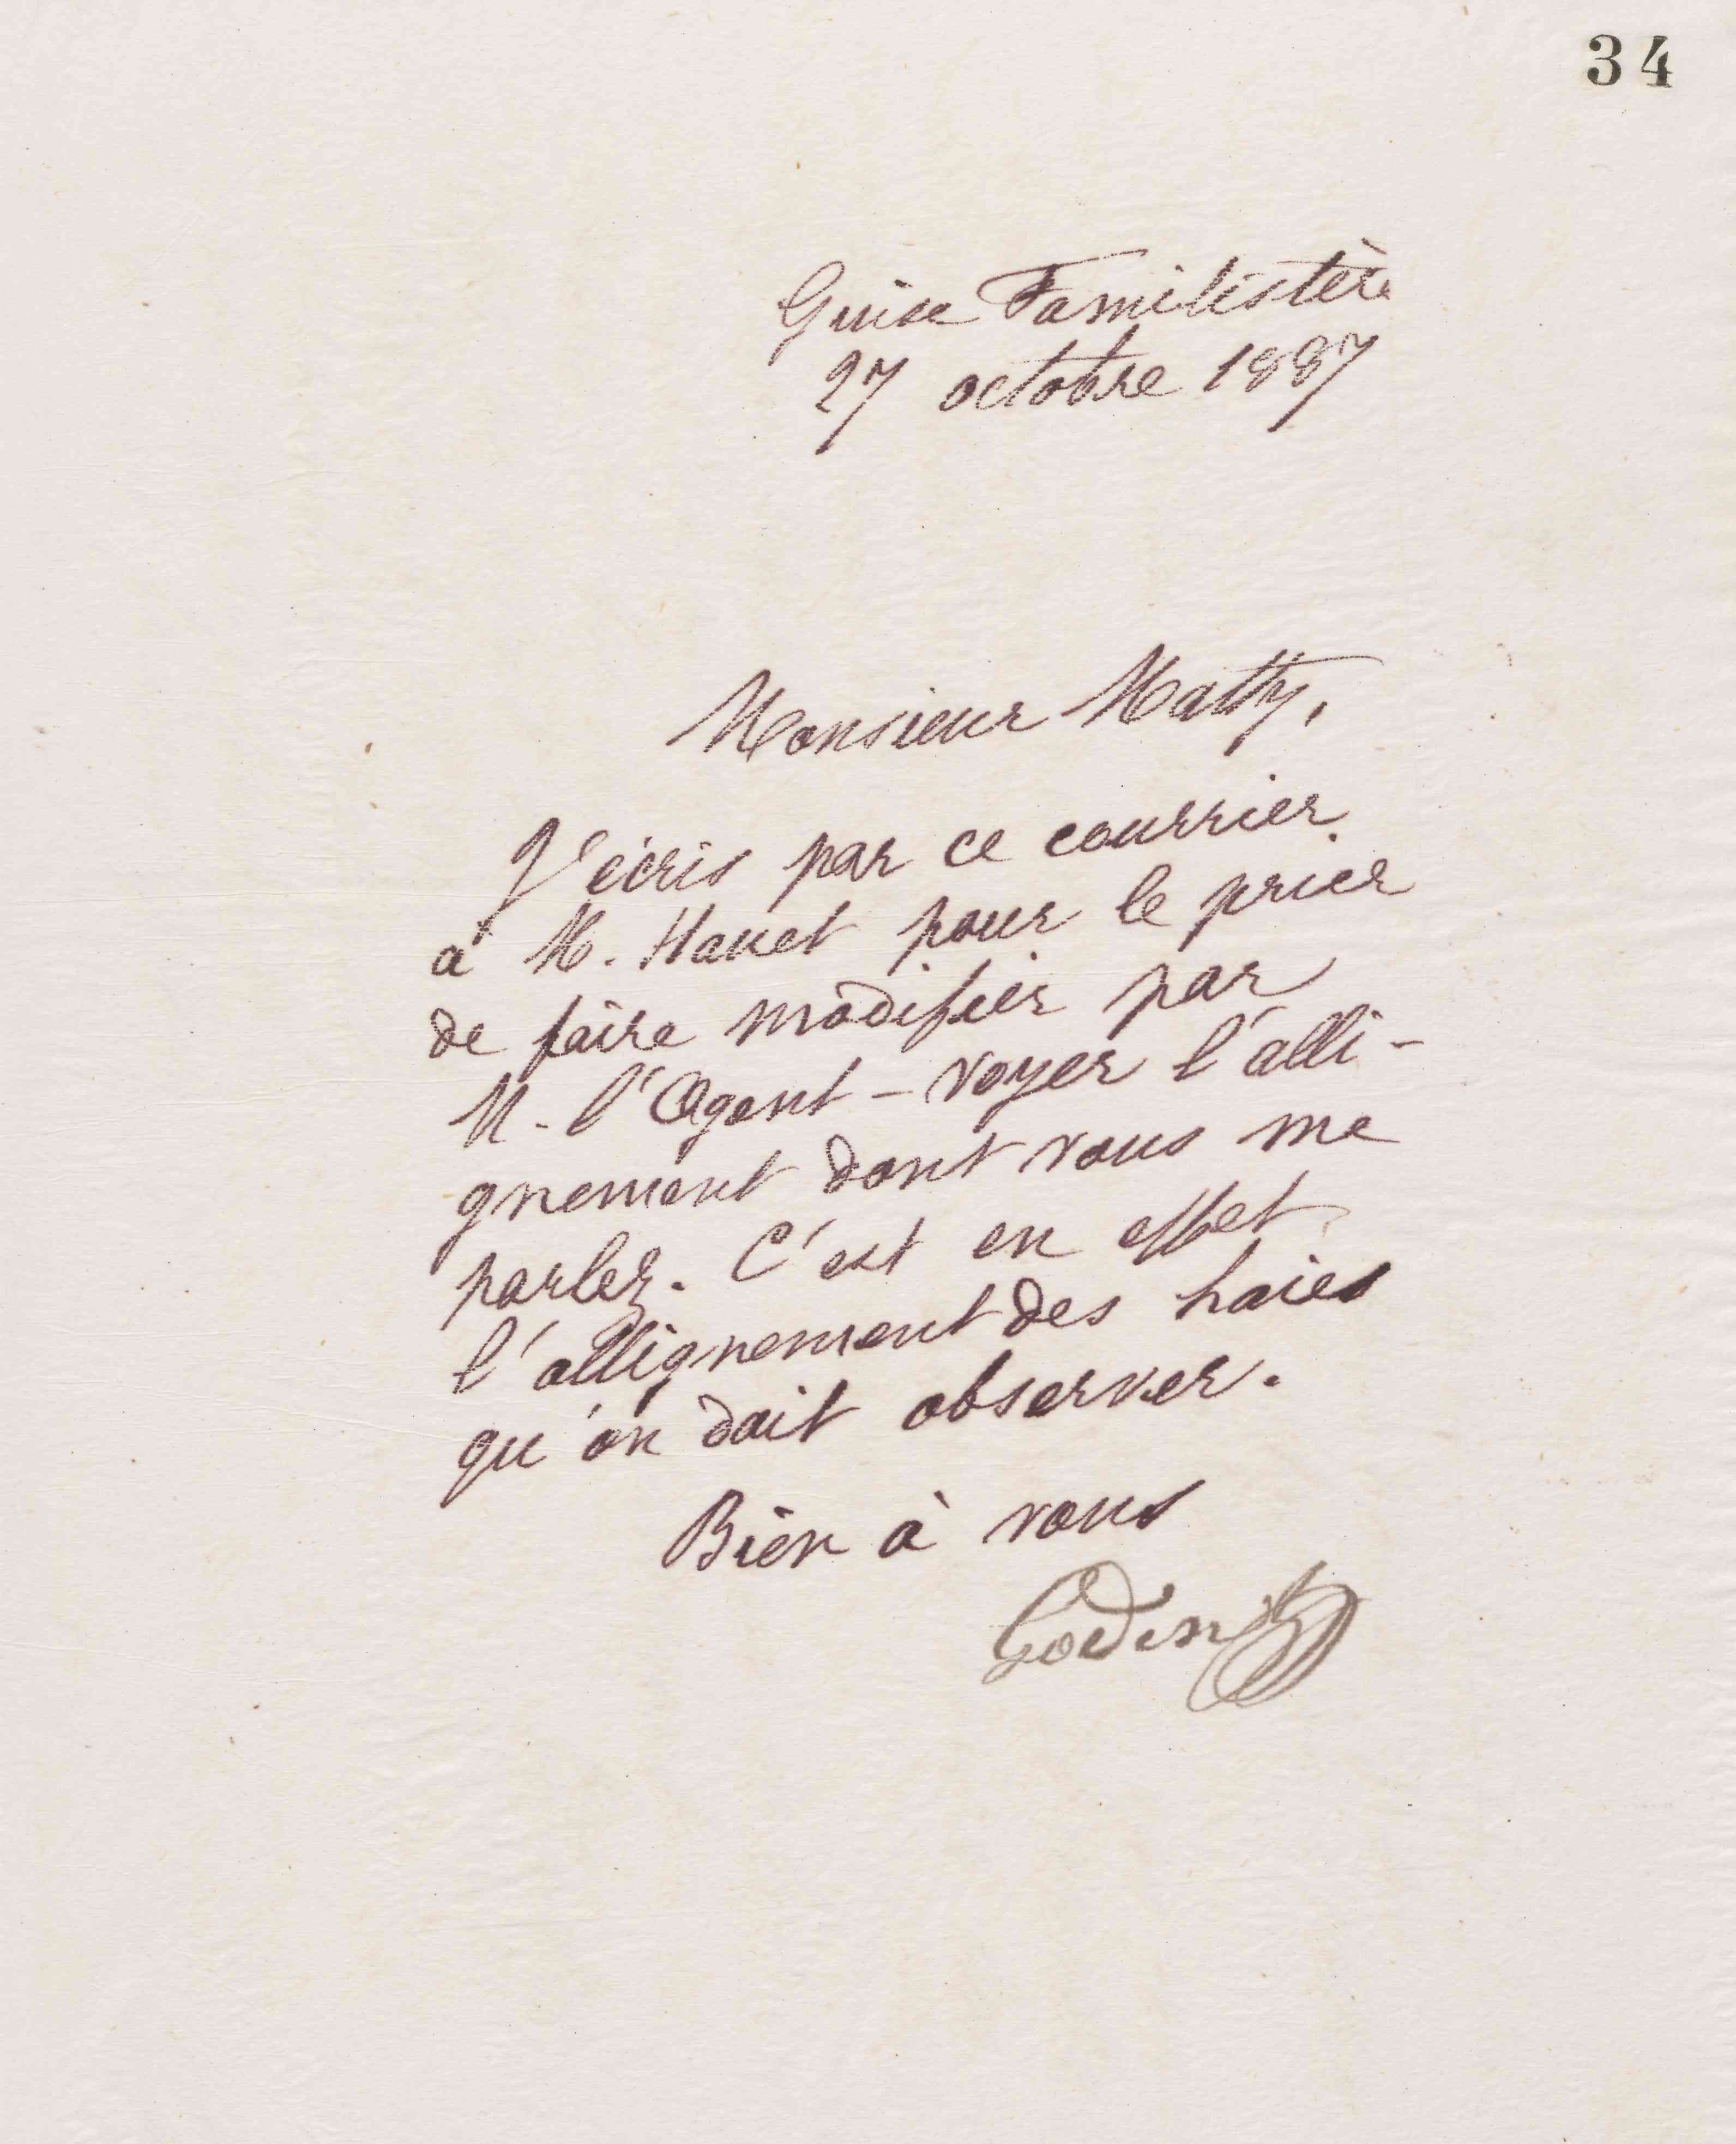 34
Guise Familistère
27 octobre 1887
Monsieur Mathy,
J'écris par ce courrier
à M. Hauet pour le prier
de faire modifier par
M. l'Agent-voyer l'alli-
gnement dont vous me
parlez. C'est en effet
l'allignement des haies
qu'on doit observer.
Bien à vous
Godin